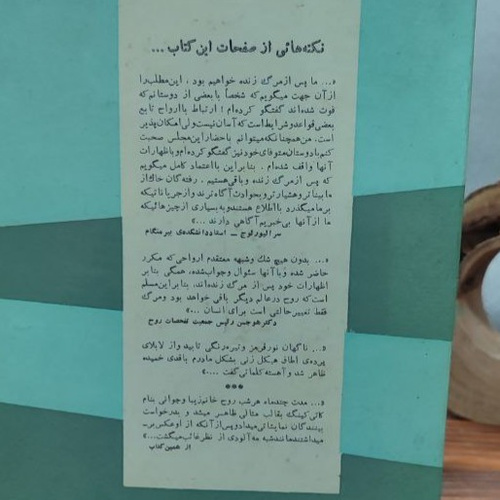 نکته‌هائی از صفحات این کتاب ...
«... ما پس از مرگ زنده خواهیم بود ، این مطلب را
از آن جهت میگویم که شخصاً با بعضی از دوستانم که
فوت شده‌اند گفتگو کرده‌ام ! ارتباط با ارواح تابع
بعضی قواعد و شرایط است که آسان نیست ولی امکان پذیر
است. من همچنانکه میتوانم با حضار این مجلس صحبت
کنم با دوستان متوفای خود نیز گفتگو کرده‌ام و با ظهارات
آنها واقف شده‌ام . بنابر این با اعتماد کامل میگویم
که پس از مرگ زنده و باقی هستیم . رفته‌گان خاك از
ما بینا تر و هشیار تر و بحوادث آگاه ترند و از جریاناتیکه
بر ما میگذرد با اطلاع هستند و به بسیاری از چیزهائیکه
ما از آنها بی‌خبریم آگاهی دارند ...»
سر الیور لوج ــ استاد دانشکده‌ی بیرمنگام
«... بدون هیچ شك و شبهه معتقدم ارواحی که مکرر
حاضر شده و با آنها سئوال و جواب شده، همگی بنا بر
اظهارات خود پس از مرگ زنده‌اند، بنابر این مسلم
است که روح در عالم دیگر باقی خواهد بود و مرگ
فقط تغییر حالتی است برای انسان ...»
دکتر هوجسن رئیس جمعیت تفحصات روح
«... ناگهان نور قرمز و تیره رنگی تابید و از لابلای
پرده‌ی اطاق هیکل زنی بشکل مادرم با قدی خمیده
ظاهر شد و آهسته کلماتی گفت ....»
***
«... مدت چند ماه هر شب روح خانم زیبا و جوانی بنام
کاتی کینگ بقالب مثالی ظاهر میشد و بدرخواست
بینندگان نمایشاتی میداد و پس از آنکه از او عکس بر ـ
میداشتند مانند شبه مه آلودی از نظر غائب میگشت...»
از همین کتاب